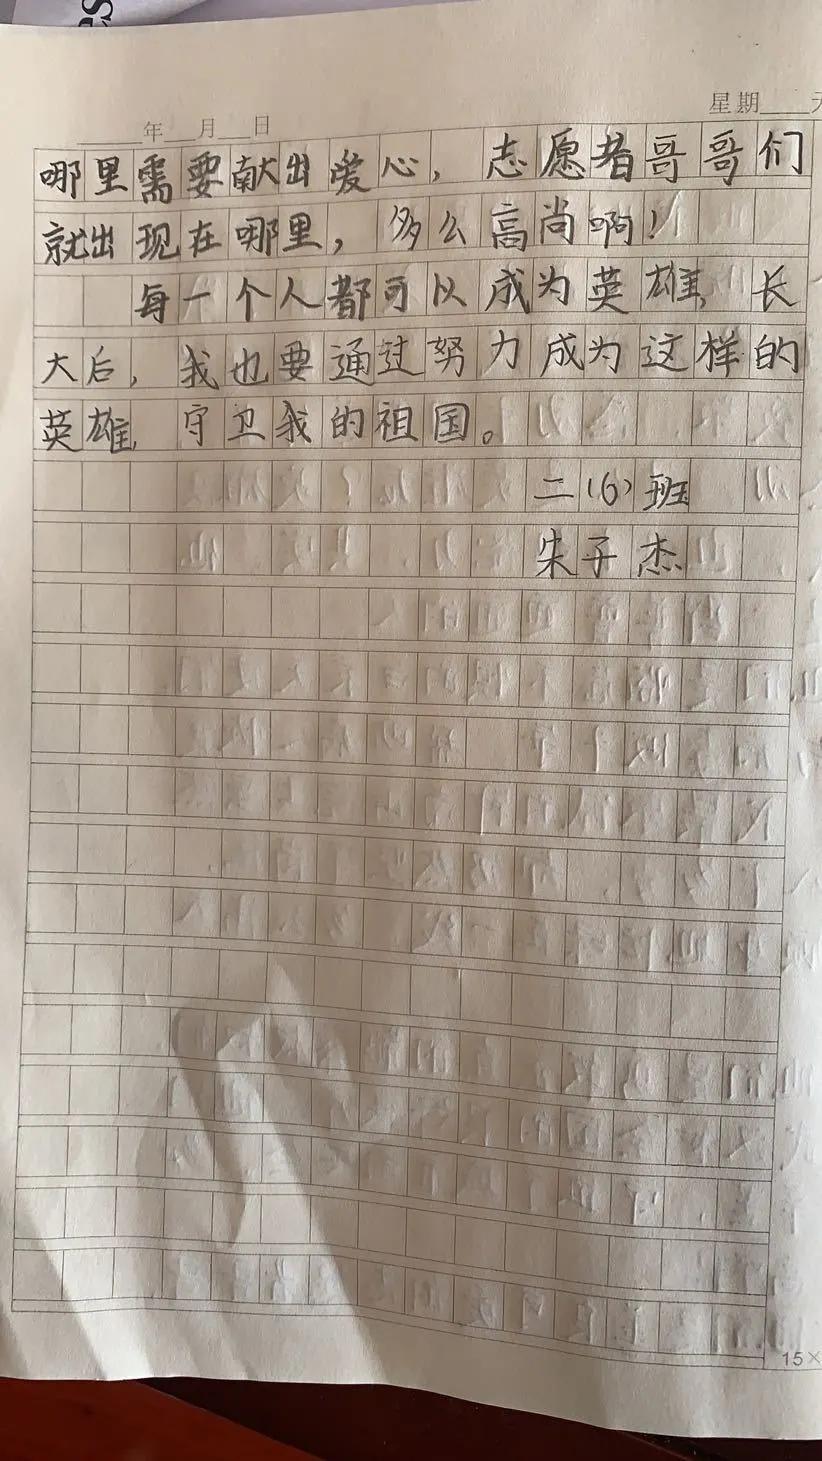 星期___天
____年___月___日
哪里需要献出爱心，志愿者哥哥们
就出现在哪里，多么高尚啊！
每一个人都可以成为英雄，长
大后，我也要通过努力成为这样的
英雄，守卫我的祖国。
二（6）班
朱子杰
15×